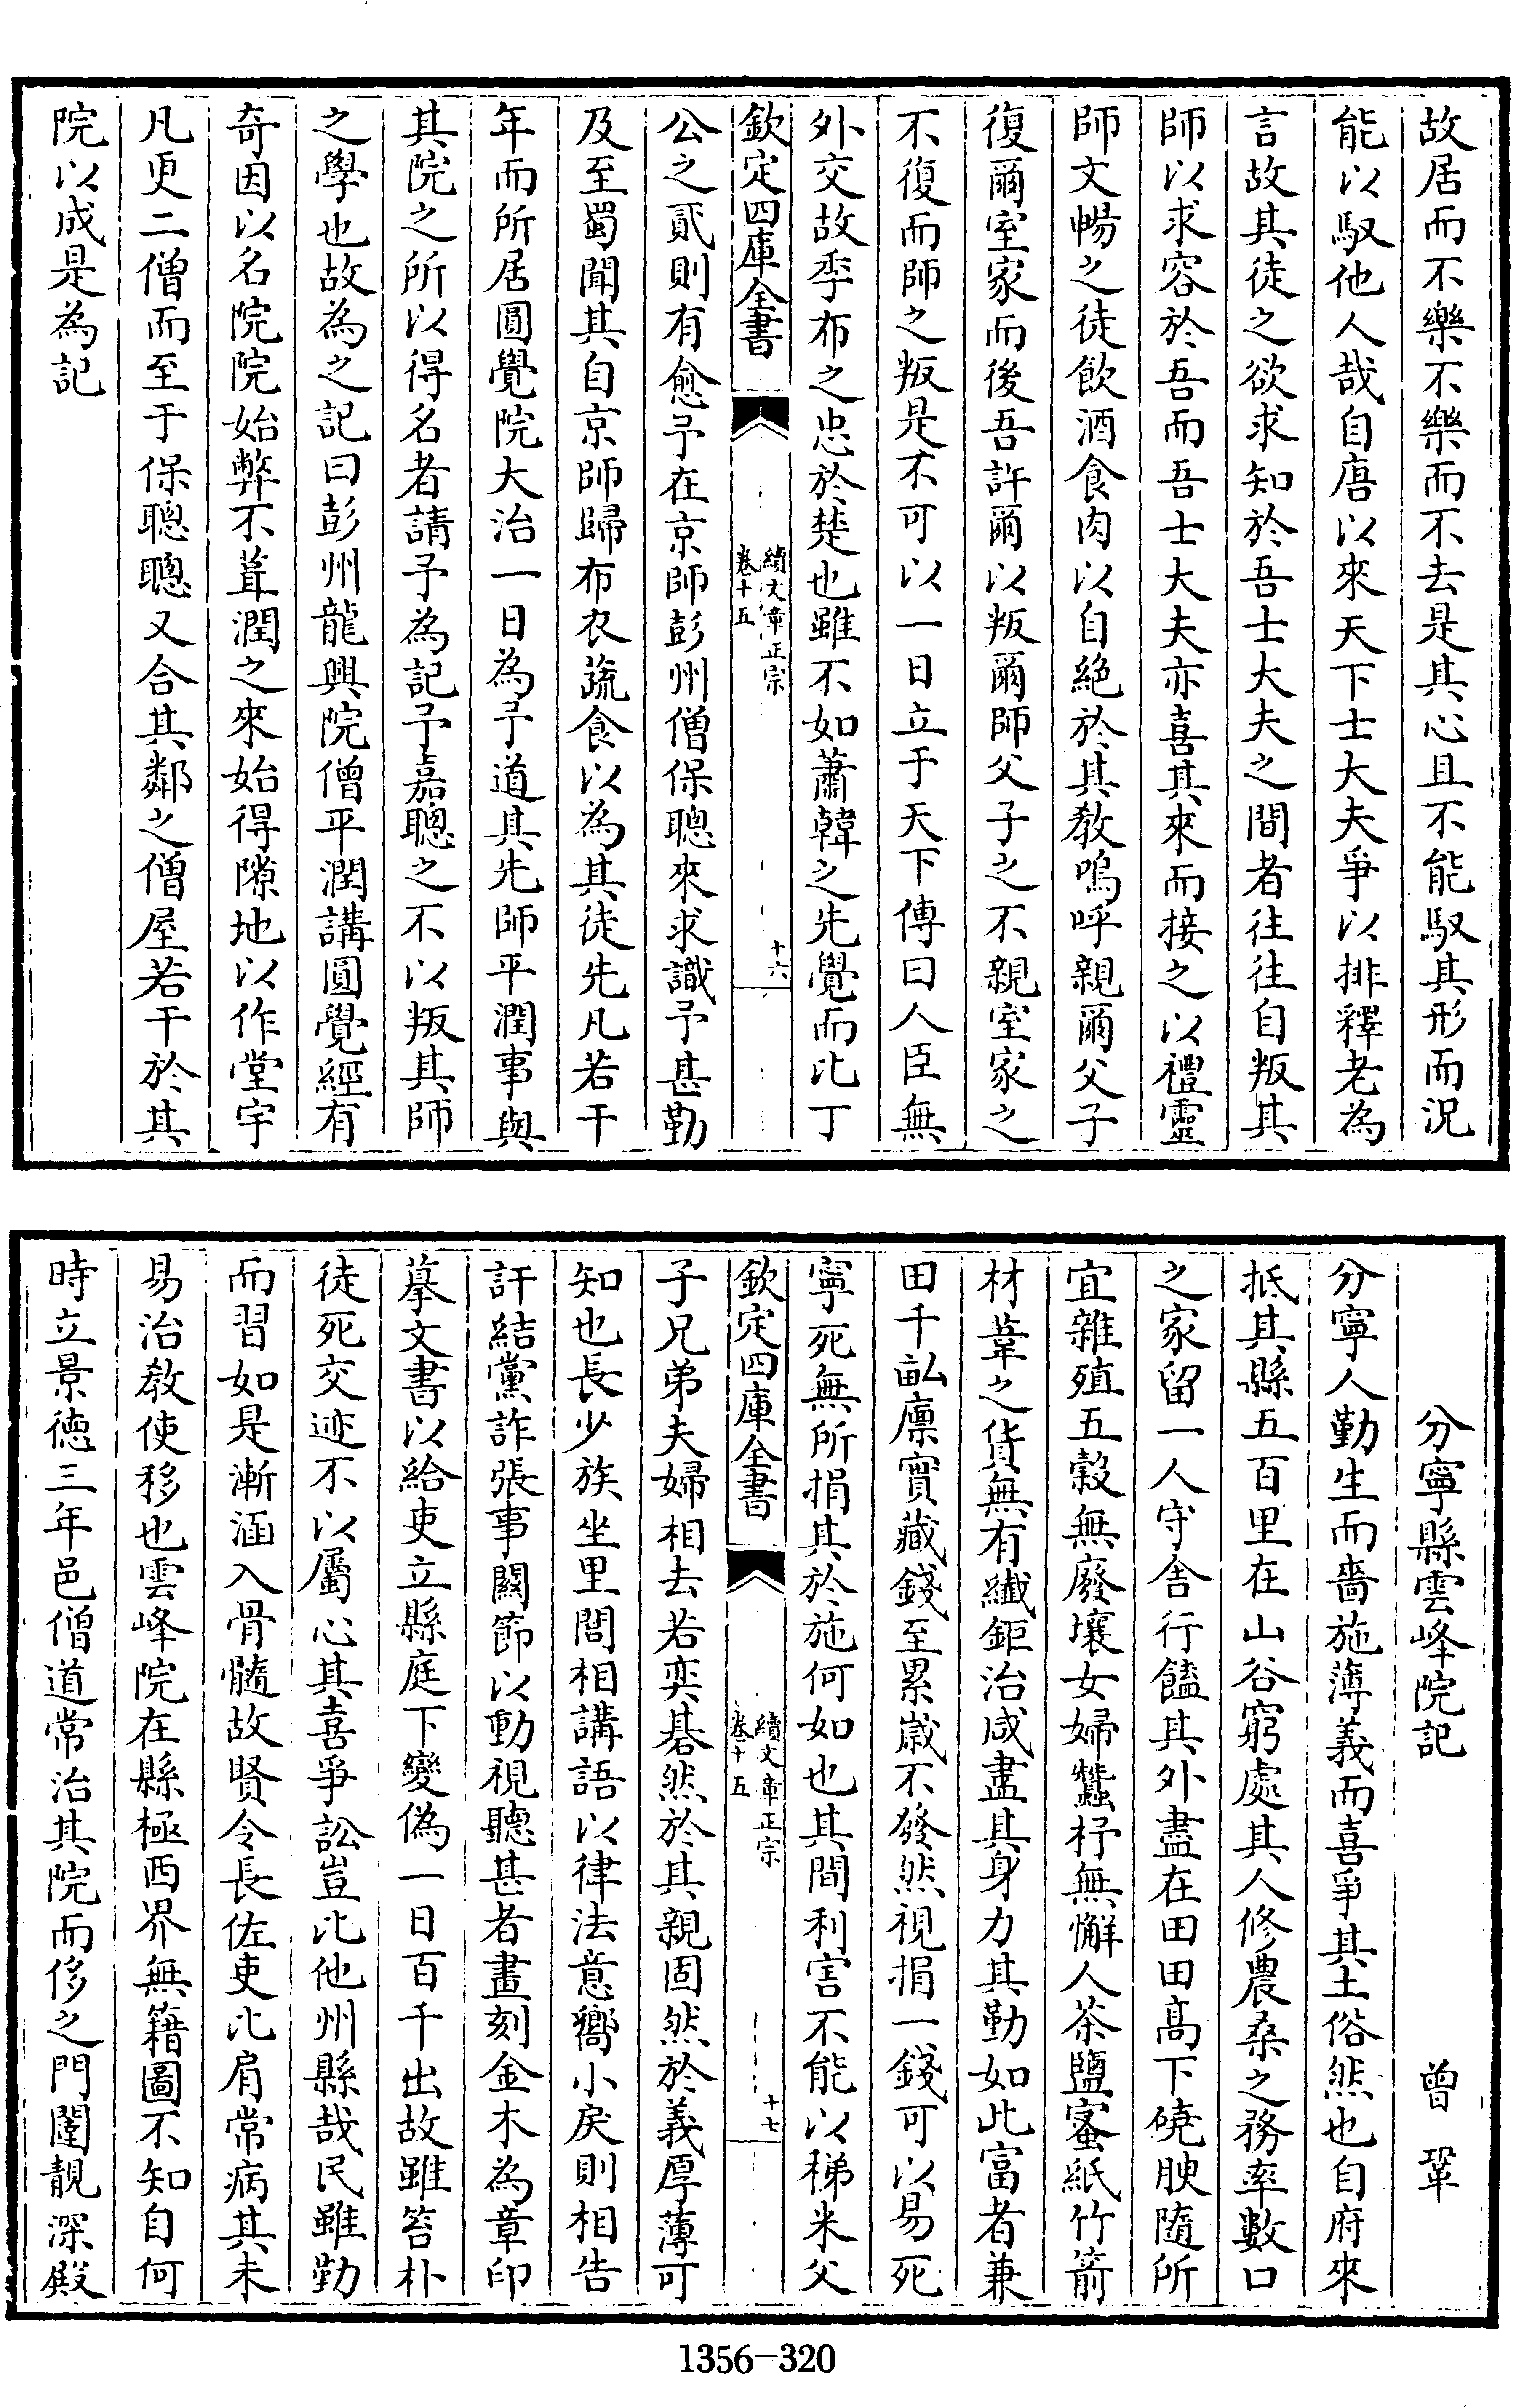 故居而不樂不樂而不去是其心且不能馭其形而況
能以馭他人哉自唐以來天下士大夫爭以排釋老為
言故其徒之欲求知於吾士大夫之間者往往自叛其
師以求容於吾而吾士大夫亦喜其來而接之以禮靈
師文暢之徒飲酒食肉以自絶於其教嗚呼親爾父子
復爾室家而後吾許爾以叛爾師父子之不親室家之
不復而師之叛是不可以一日立于天下傳曰人臣無
外交故季布之忠於楚也雖不如蕭韓之先覺而比丁
欽定四庫全書
續文章正宗
卷十五
十六
公之貳則有愈予在京師彭州僧保聰來求識予甚勤
及至蜀聞其自京師歸布衣蔬食以為其徒先凡若干
年而所居圓覺院大治一日為予道其先師平潤事與
其院之所以得名者請予為記予嘉聰之不以叛其師
之學也故為之記曰彭州龍興院僧平潤講圓覺經有
奇因以名院院始弊不葺潤之來始得隙地以作堂宇
凡更二僧而至于保聰聰又合其鄰之僧屋若干於其
院以成是為記
分寧縣雲峰院記
曾鞏
分寧人勤生而嗇施薄義而喜爭其土俗然也自府來
抵其縣五百里在山谷窮處其人修農桑之務率數口
之家留一人守舍行饁其外盡在田田高下磽腴隨所
宜雜殖五穀無廢壤女婦蠶杼無懈人茶鹽蜜紙竹箭
材葦之貨無有纖鉅治咸盡其身力其勤如此富者兼
田千畝廪實藏錢至累嵗不發然視捐一錢可以易死
寧死無所捐其於施何如也其間利害不能以稊米父
欽定四庫全書
續文章正宗
卷十五
十七
子兄弟夫婦相去若奕碁然於其親固然於義厚薄可
知也長少族坐里閭相講語以律法意嚮小戾則相告
訐結黨詐張事闗節以動視聽甚者畫刻金木為章印
摹文書以給吏立縣庭下變偽一日百千出故雖笞朴
徒死交迹不以屬心其喜爭訟豈比他州縣哉民雖勤
而習如是漸涵入骨髓故賢令長佐吏比肩常病其未
易治教使移也雲峰院在縣極西界無籍圖不知自何
時立景徳三年邑僧道常治其院而侈之門闥靚深殿
1356-320